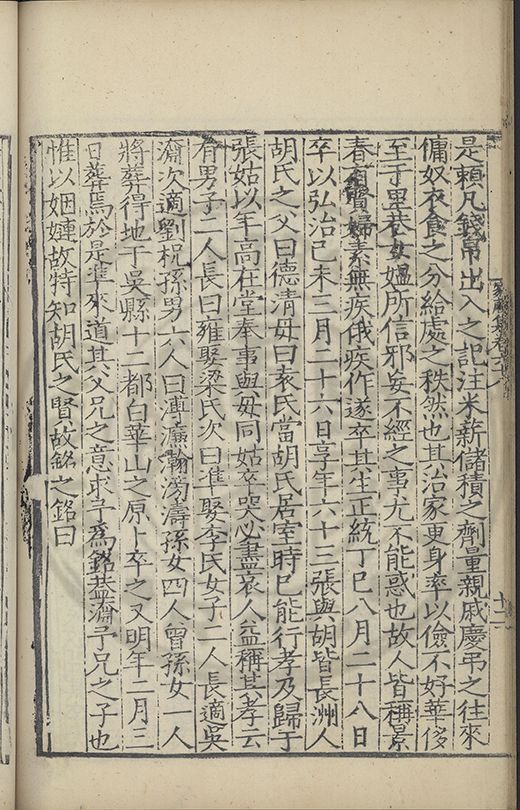 是賴凡錢帛出入之記注米薪儲積之劑量親戚慶弔之往來
傭奴衣食之分給處之秩然也其治家更身率以儉不好華侈
至于里巷女媼所信邪妄不經之事尤不能惑也故人皆稱景
春有賢婦素無疾俄疾作遂卒其生正統丁巳八月二十八日
卒以弘治己未三月二十六日享年六十三張與胡皆長洲人
胡氏之父曰德清母曰袁氏當胡氏居室時已能行孝及歸于
張姑以年高在堂奉事與母同姑卒哭必盡哀人益稱其孝云
有男子二人長曰雍娶梁氏次曰準娶李氏女子二人長適吳
濟次適劉棁孫男六人曰溥瀛瀚湯濤孫女四人曾孫女一人
將葬得地于吳縣十二都白華山之原卜卒之又明年二月三
日葬焉於是準來道其父兄之意求予爲銘蓋濟予兄之子也
惟以姻婣故特知胡氏之賢故銘之銘曰